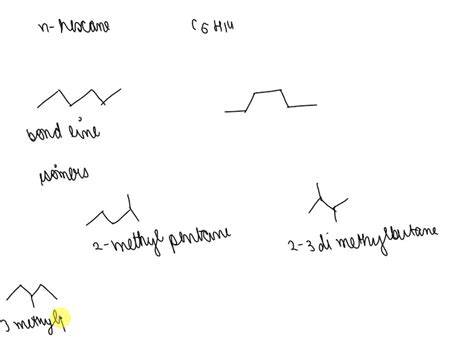 n-hexane C6H14
bond line
isomers
2-methyl pentane 2-3 dimethylbutane
3 methylp